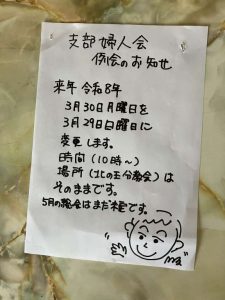 支部婦人会
例会のお知せ
来年 令和8年
3月30日月曜日を
3月29日日曜日に
変更します。
時間 (10時〜)
場所 (北の玉分教会) は
そのままです。
5月の総会はまだ未定です。